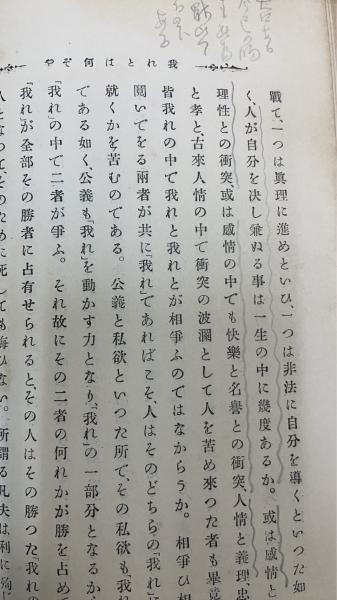 我れとは何ぞや
戰て、一つは眞理に進めといひ、一つは非法に自分を導くといつた如
く、人が自分を決し兼ぬる事は一生の中に幾度あるか。或は感情と
理性との衝突、或は感情の中でも快樂と名譽との衝突、人情と義理、忠
と孝と、古來人情の中で衝突の波瀾として人を苦め來つた者も畢竟
皆我れの中で我れと我れとが相爭ふのではなからうか。相爭ひ相
鬩いでをる兩者が共に「我れ」であればこそ、人はそのどちらの「我れ」に
就くかを苦むのである。公義と私欲といつた所で、その私欲も「我れ
である如く、公義も「我れ」を動かす力となり、「我れ」の一部分となるか、
「我れ」の中で二者が爭ふ。それ故にその二者の何れかが勝を占め
「我れ」が全部その勝者に占有せられると、その人はその勝つた「我れの
人となつて、そのために死しても悔ひない。所謂る凡夫は利に殉じ